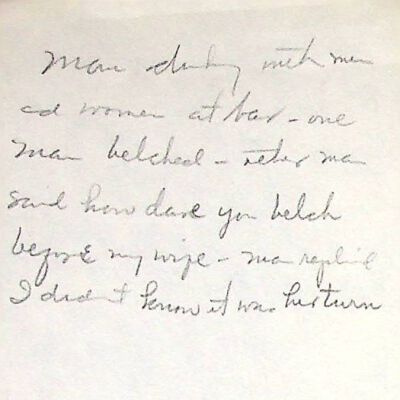 Man drinking with men
and women at bar - one
man belched - other man
said how dare you belch
before my wife - man replied
I didn't know it was her turn